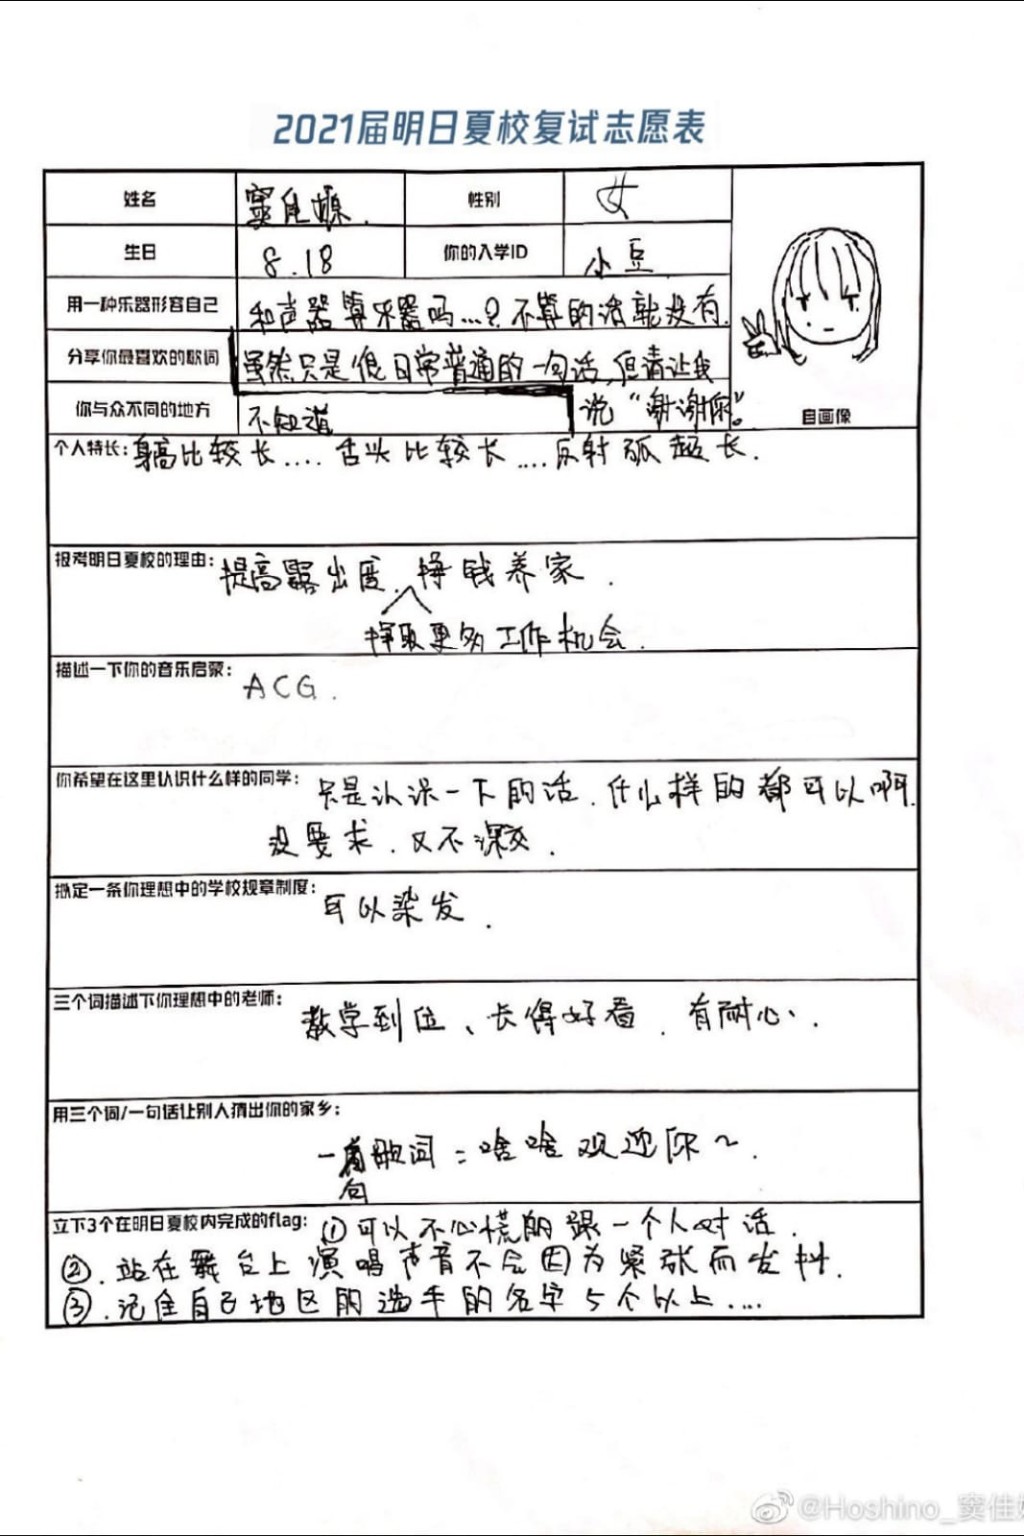 2021届明日夏校复试志愿表
姓名 窦佳嫄. 性别 女
生日 8.18 你的入学ID 小豆.
用一种乐器形容自己 和声器算乐器吗...?不算的话就没有.
分享你最喜欢的歌词 虽然只是很日常普通的一句话,但请让我
说“谢谢你”。
你与众不同的地方 不知道
自画像
个人特长: 身高比较长.... 舌头比较长....反射弧超长.
报考明日夏校的理由: 提高露出度、挣钱养家.
挣取更多工作机会.
描述一下你的音乐启蒙: ACG.
你希望在这里认识什么样的同学: 只是认识一下的话.什么样的都可以啊.
没要求.又不深交.
拟定一条你理想中的学校规章制度: 可以染发.
三个词描述下你理想中的老师: 教学到位、长得好看.有耐心.
用三个词/一句话让别人猜出你的家乡:
一句歌词:啥啥欢迎你~.
立下3个在明日夏校内完成的flag: ①可以不心慌的跟一个人对话.
②.站在舞台上演唱声音不会因为紧张而发抖.
③.记住自己地区的选手的名字5个以上....
@Hoshino_窦佳